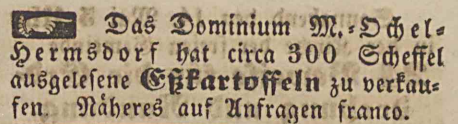 Das Dominium M.-Ochel-
Hermsdorf hat circa 300 Scheffel
ausgelesene Eßkartoffeln zu verkau-
fen. Näheres auf Anfragen franco.